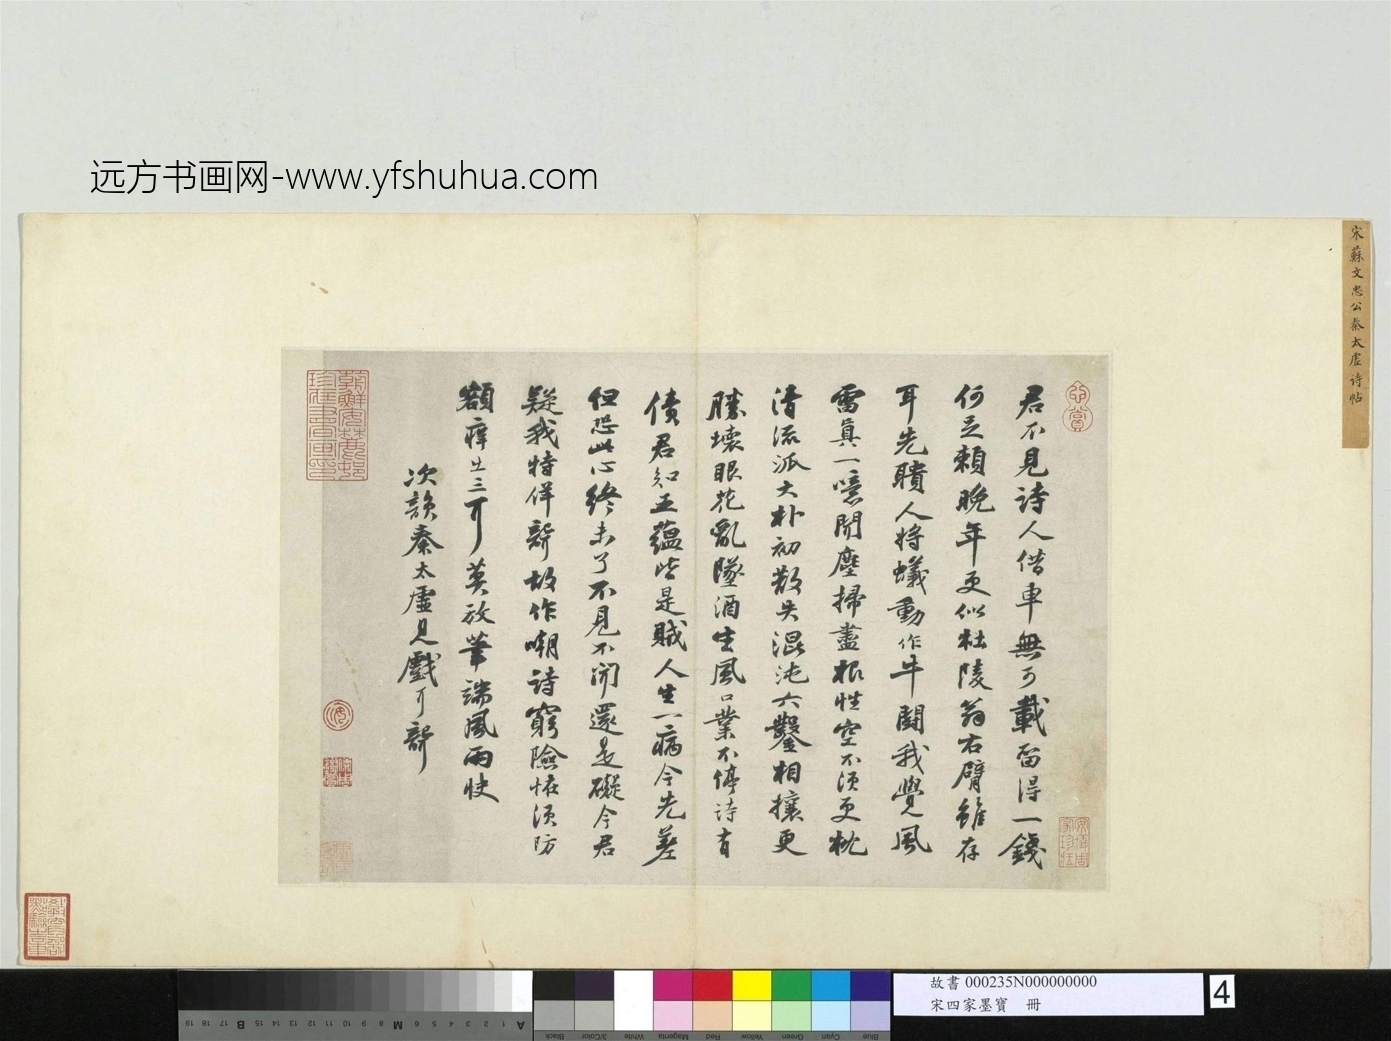 远方书画网-www.yfshuhua.com
宋蘇文忠公秦太虛诗帖
君不見詩人借車無可載留得一錢
何足賴晚年更似杜陵翁右臂雖存
耳先聵人將蟻動作牛鬪我覺風
雷真一噫聞塵掃盡根性空不須更枕
清流派大朴初散失混沌六鑿相攘更
勝壞眼花亂墜酒生風口業不停詩有
債君知五蘊皆是賊人生一病今先差
但恐此心終未了不見不聞還是礙今君
疑我特佯聾故作嘲詩窮險怪須防
額癢出三耳莫放筆端風雨快
次韻秦太虛見戲耳聾
故書 000235N000000000
宋四家墨寶 冊
4
19 18 17 B 16 15 14 13 12 11 10 9 8 M 7 6 5 4 3 2 1 A
Black 3/Color White Magenta Red Yellow Green Cyan Blue